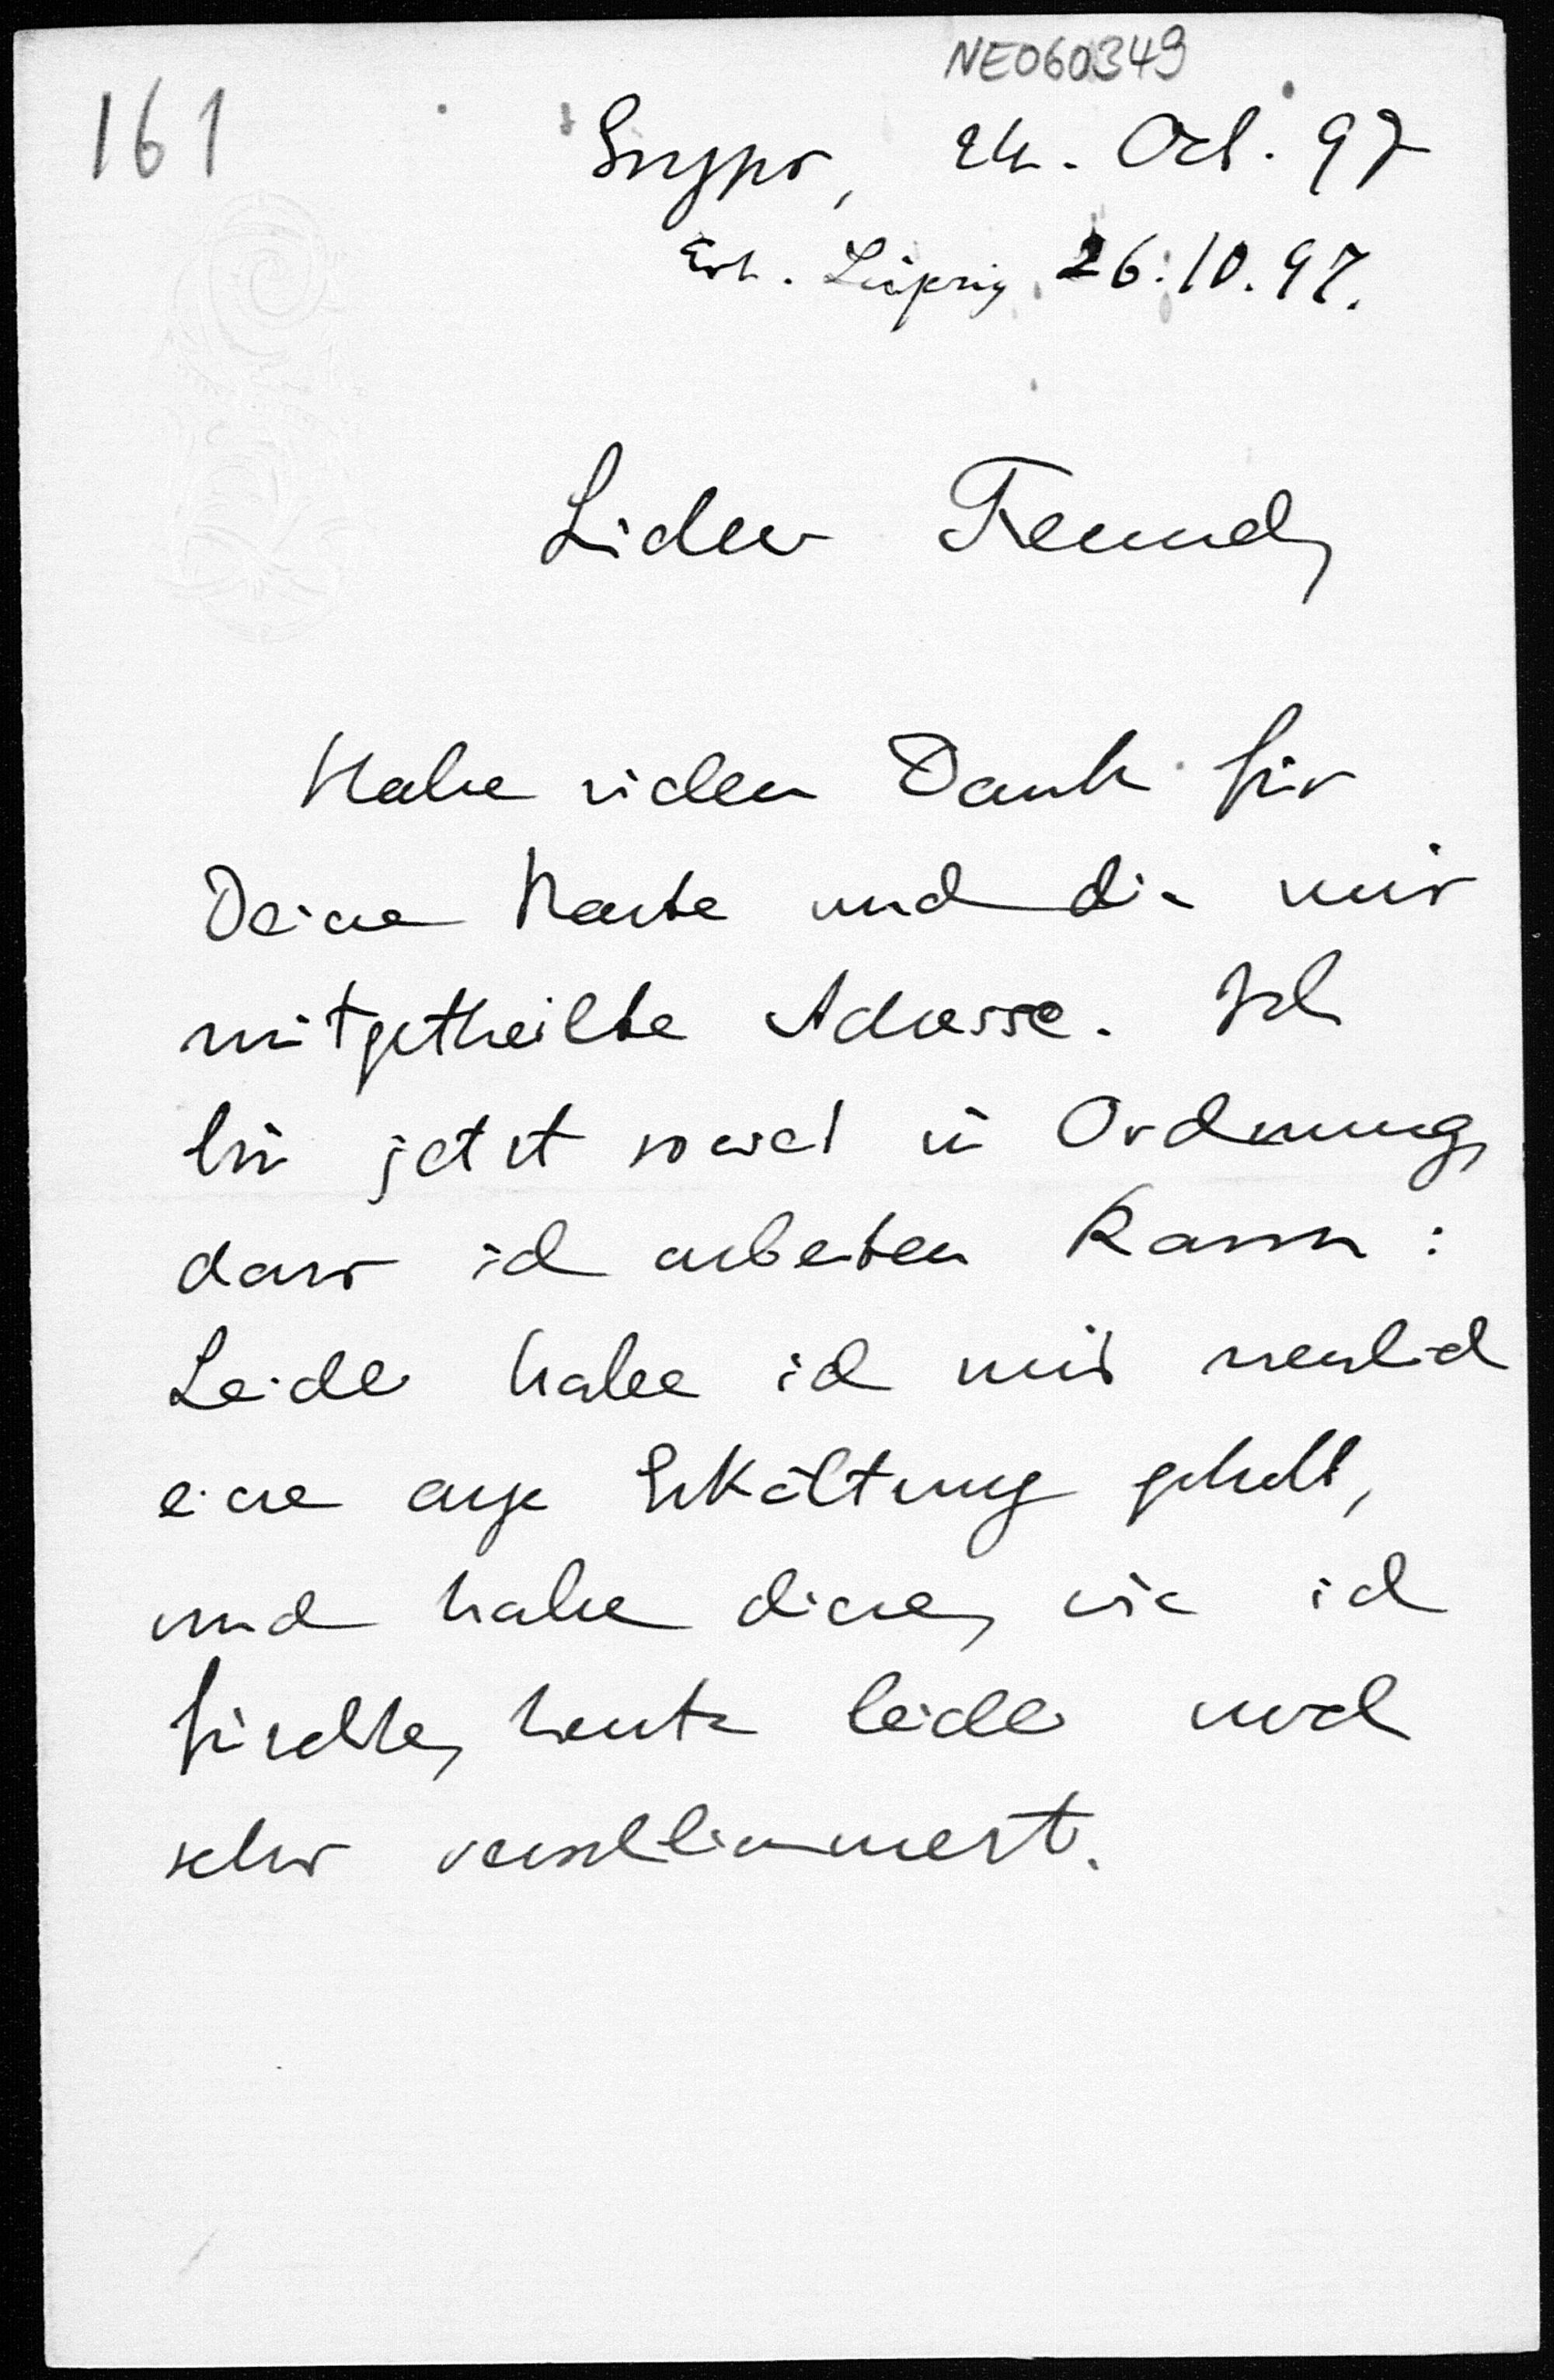 NE060349
161
24. Oct. 97
Erh. Leipzig 26.10.97.
Lieber Freund,
Habe vielen Dank für
Deine Karte und die mir
mitgetheilte Adresse. Ich
bin jetzt soweit in Ordnung,
dass ich arbeiten kann:
Leider habe ich mir neulich
eine arge Erkältung geholt,
und habe diese, wie ich
fürchte, heute leider noch
sehr verschlimmert.